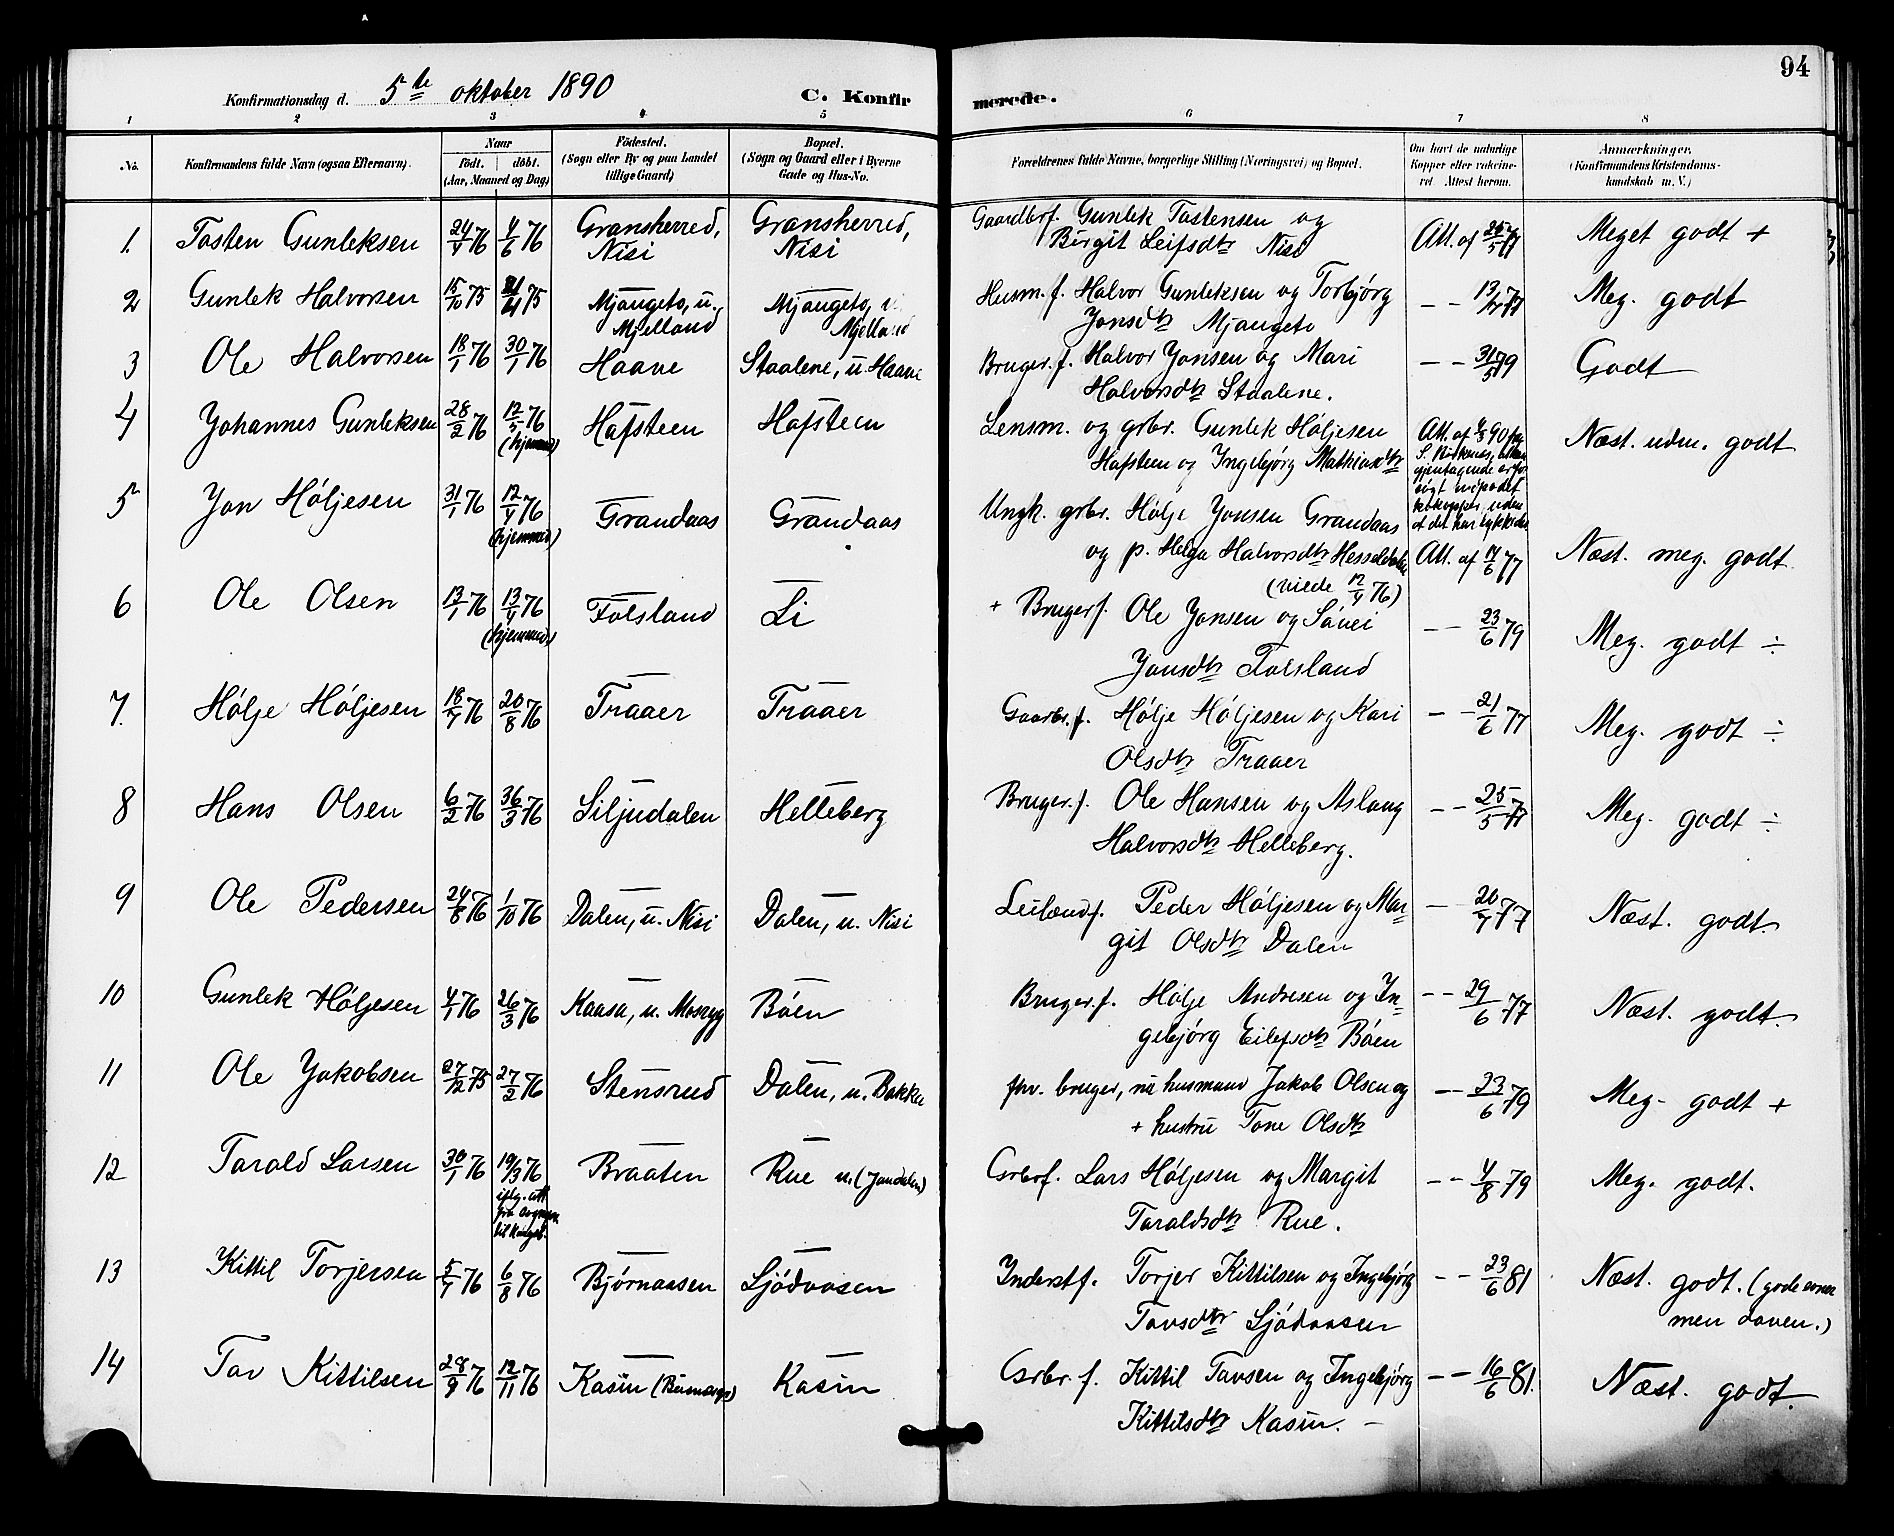 94
Konfirmationsdag d. 5te oktober 1890 C. Konfirmerede.
1 2 3 4 5 6 7 8
No. Konfirmandens fulde Navn (ogsaa Efternavn). Naar födt. döbt. (Aar, Maaned og Dag) Födested. (Sogn eller By og paa Landet tillige Gaard) Bopæl. (Sogn og Gaard eller i Byerne Gade og Hus-No. Forældrenes fulde Navne, borgerlige Stilling (Næringsvei) og Bopæl. Om havt de naturlige Kopper eller vakcineret. Attest herom. Anmærkninger. (Konfirmandens Kristendomskundskab m. V.)
1. Tosten Gunleksen 24/4 76 4/6 76 Gransherred, Nisi Gransherred, Nisi Gaardbrf. Gunlek Tostensen og
Birgit Leifsdtr Nisi Att. af 25/5 77 Meget godt +
2 Gunlek Halvorsen 15/10 75 75 Mjaugeto, u. Mjelland Mjaugeto, u. Mjelland Husm.f. Halvor Gunleksen og Torbjørg
Jonsdtr Mjaugeto – – 13/ 77 Meg. godt
3 Ole Halvorsen 18/1 76 30/1 76 Haave Staalene, u. Haave Bruger.f. Halvor Jonsen og Mari
Halvorsdtr Staalene. – – 31/5 79 Godt
4 Johannes Gunleksen 28/2 76 12/5 76 (hjemmed) Hafsteen Hafsteen Lensm. og grbr. Gunlek Høljesen
Hafsteen og Ingebjørg Mathiasdtr Att. af 90 Næst. udm. godt
gjentagende
uden
at det har lykkedes
5 Jon Høljesen 31/1 76 12/4 76 (hjemmed) Grandaas Grandaas Ungk. grbr. Hølje Jonsen Grandaas
og p. Helga Halvorsdtr Hesseldalen
(viede 12/4 76) Att. af 14/6 77 Næst. meg. godt
6 Ole Olsen 13/1 76 13/4 76 (hjemmed) Folsland Li + Brugerf. Ole Jonsen og Sávei
Jonsdtr Folsland – – 23/6 79 Meg. godt ÷
7. Hølje Høljesen 18/7 76 20/8 76 Traaer Traaer Gaarbr.f. Hølje Høljesen og Kari
Olsdtr Traaer – – 21/6 77 Meg. godt ÷
8 Hans Olsen 6/2 76 26/3 76 Siljudalen Helleberg Bruger.f. Ole Hansen og Aslaug
Halvorsdtr Helleberg. – – 25/5 77 Meg. godt ÷
9 Ole Pedersen 24/8 76 1/10 76 Dalen, u. Nisi Dalen, u. Nisi Leilændf. Peder Høljesen og Mar-
git Olsdtr Dalen – 20/7 77 Næst. godt.
10 Gunlek Høljesen 4/1 76 26/3 76 Kaasa, u. Mosryg Böen Bruger.f. Hølje Andresen og In-
gebjørg Eilefsdtr Böen – – 29/6 77 Næst. godt.
11 Ole Jakobsen 27/12 75 27/2 76 Stensrud Dalen, u. Bakka fhv. bruger, nu husmand Jakob Olsen og
+ hustru Tone Olsdtr – – 23/6 79 Meg. godt +
12 Tarald Larsen 30/1 76 19/3 76 iflg. att fra Braaten Rue u. (Jondalen) Grbrf. Lars Høljesen og Margit
Taraldsdtr Rue. – – 4/8 79 Meg. godt.
13 Kittil Torjersen 5/7 76 6/8 76 Bjørnaasen Ljödvasen Inderstf. Torjer Kittilsen og Ingebjørg
Tovsdtr Ljödvasen – – 23/6 81 Næst. godt. (gode evner
men doven.)
14 Tov Kittilsen 28/9 76 12/11 76 Kasin Kasin Grbr.f. Kittil Tovsen og Ingebjørg
Kittilsdtr Kasin. – – – 16/6 81. Næst. godt.